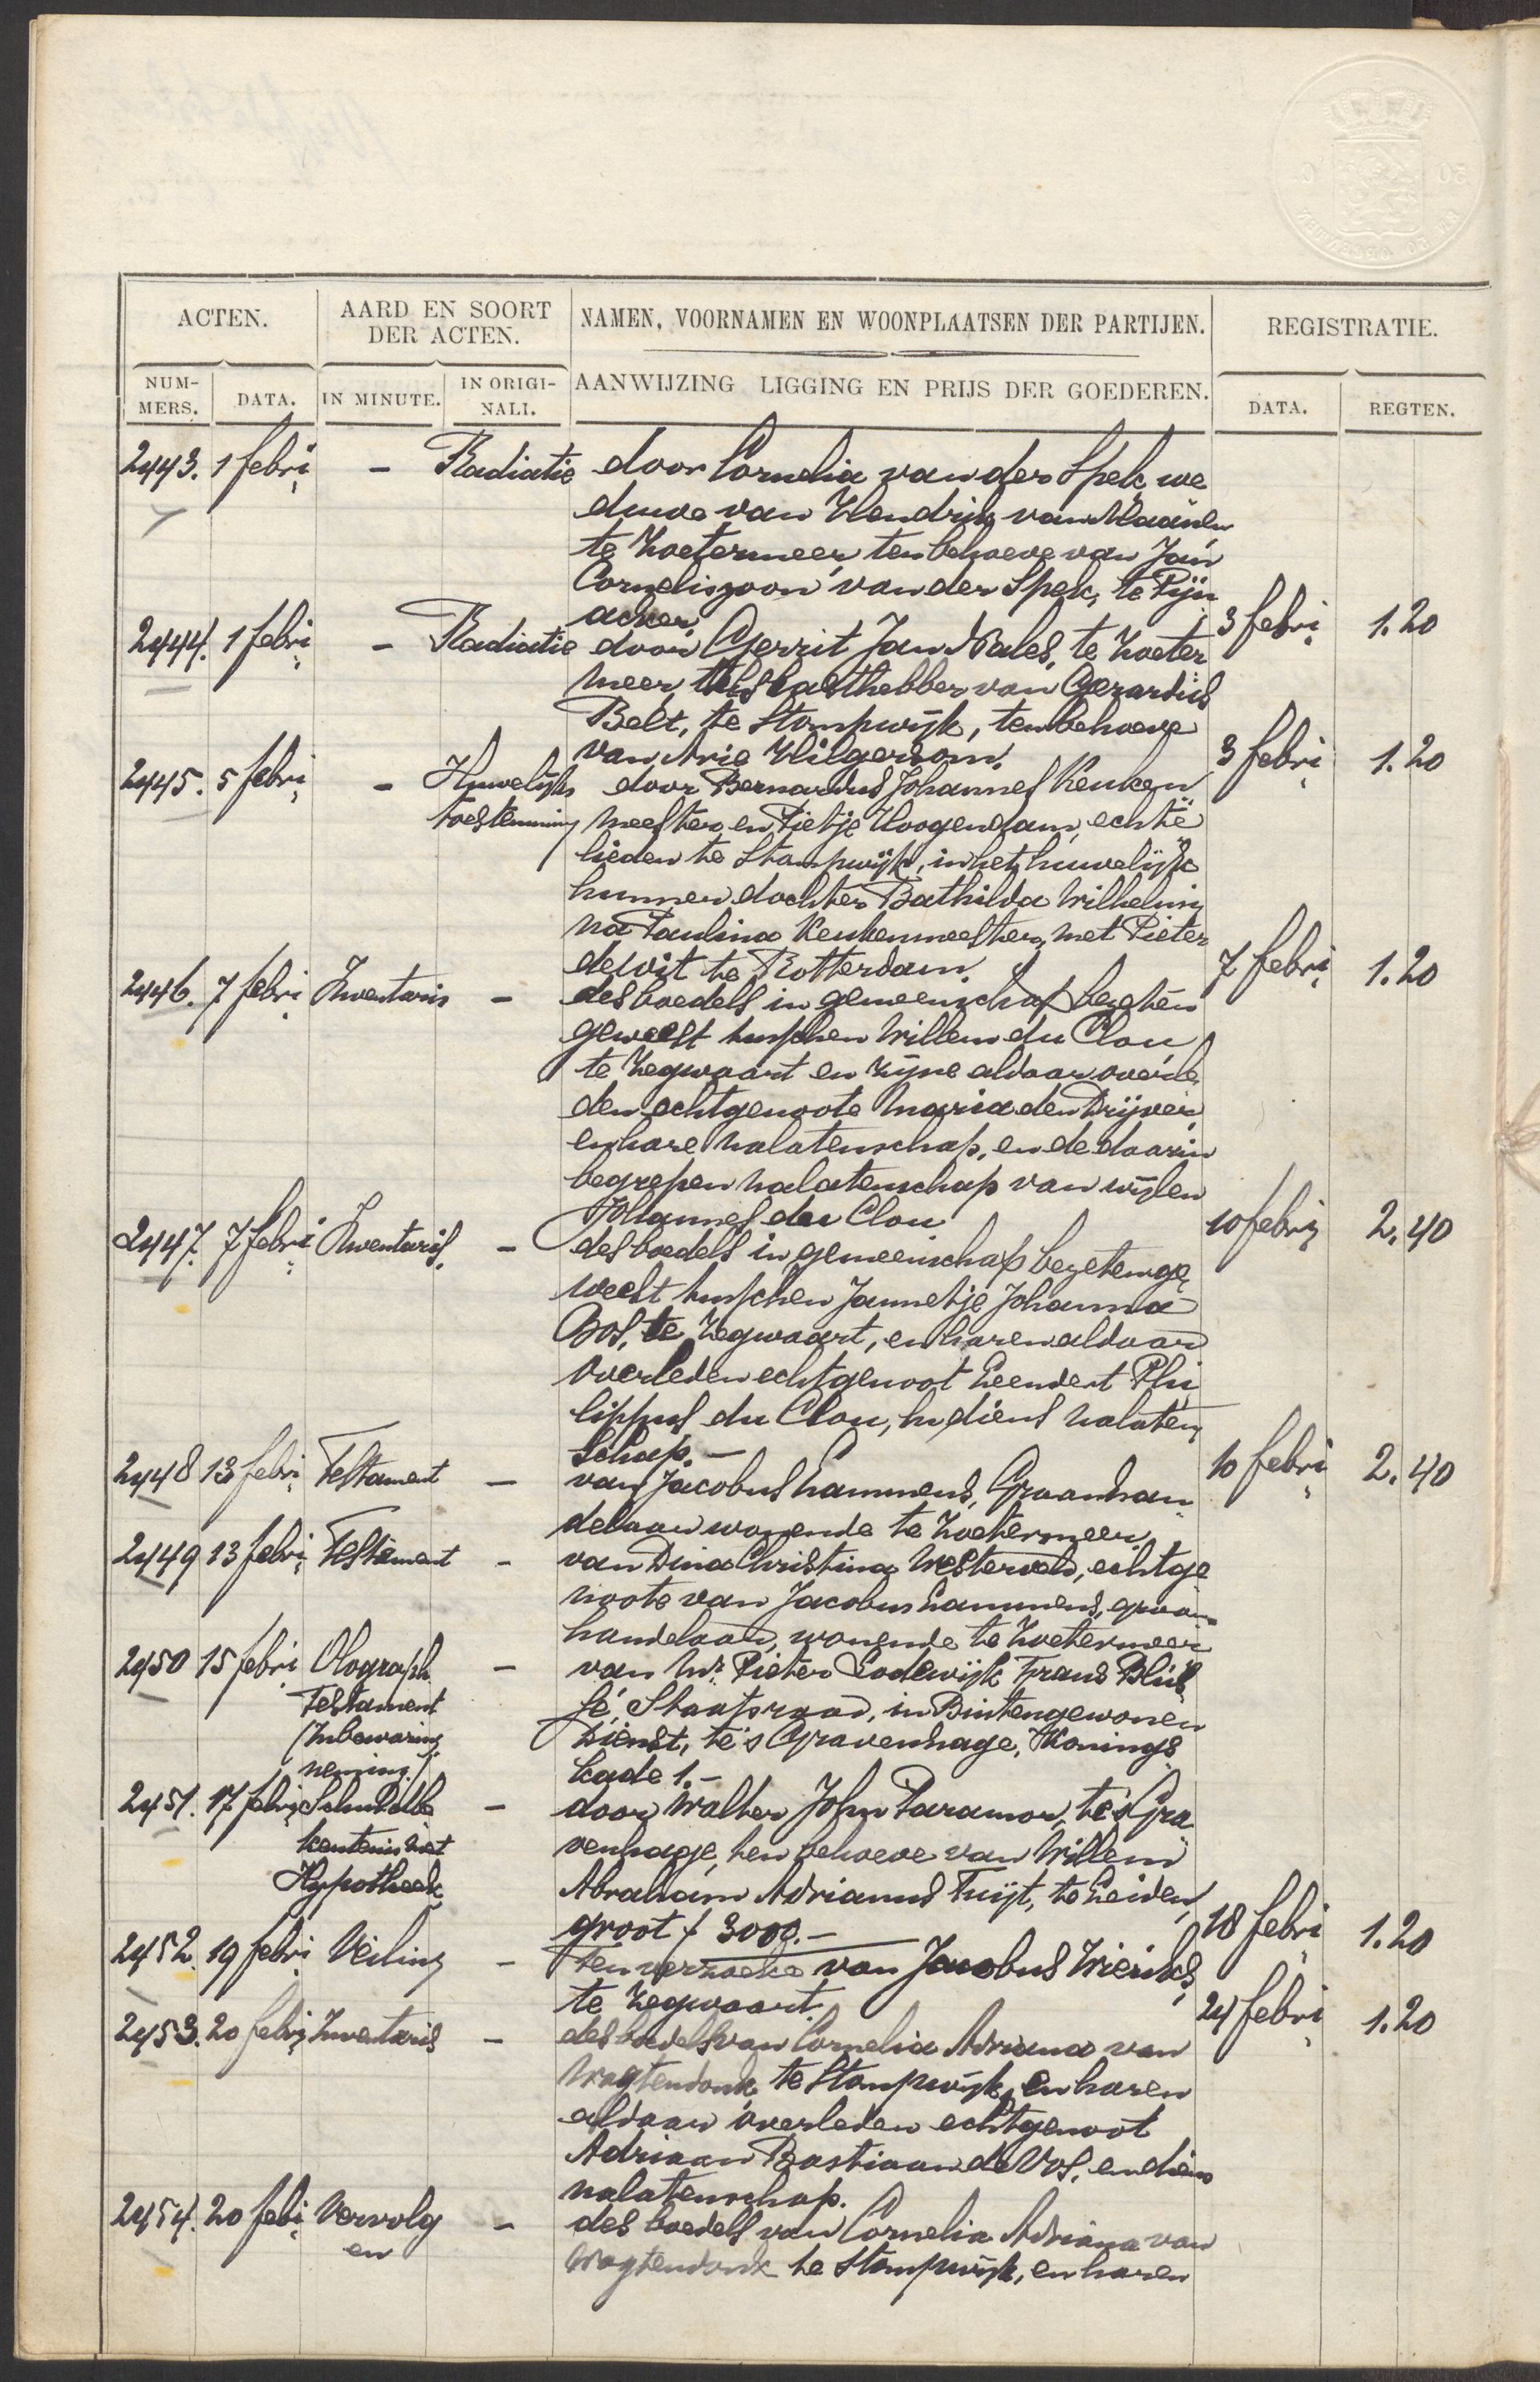 ACTEN.
AARD EN SOORT
DER ACTEN.
NAMEN, VOORNAMEN EN WOONPLAATSEN DER PARTIJEN.
REGISTRATIE.
NUM-
MERS.
DATA.
IN MINUTE.
IN ORIGI-
NALI.
AANWIJZING LIGGING EN PRIJS DER GOEDEREN.
DATA.
REGTEN.
2443. 1 febri - Radiatie door Cornelia van der Spek, we
duwe van Hendrik van
te Zoetermeer, ten behoeve van Jan
Corneliszoon van der Spek, te Pijn
acker, 3 febri 1.20
2444. 1 febri - Radiatie door Gerrit Jan Bales, te Zoeter
meer, als lasthebber van Gerardus
Belt, te Stompwijk, ten behoeve
van Arie Hilgersom. 3 febri 1.20
2445. 5 febri - Huwelijks door Bernardus Johannes Keuken
toestemming meester en Pietje Hoogendam, echte
lieden te Stompwijk, in het huwelijk
hunner dochter Bathilda Wilhelmi
na Paulina Keukenmeester, met Pieter
de Wit te Rotterdam. 7 febri 1.20
2446. 7 febri Inventaris - des boedels in gemeenschap bezeten
geweest tusschen Willem du Clou,
te Zegwaart en zijne aldaar overle
den echtgenoote Maria den Drijver,
en hare nalatenschap, en de daarin
begrepen nalatenschap van wijlen
Johannes du Clou 10 febri 2.40
2447. 7 febri Inventaris. - des boedels in gemeenschap bezeten ge
weest tusschen Jannetje Johanna
Bos, te Zegwaart, en haren aldaar
overleden echtgenoot Leendert Phi
lippus du Clou, en diens nalaten
schap. - 10 febri 2.40
2448 13 febri Testament - van Jacobus Lammens, Graanhan
delaar wonende te Zoetermeer,
2449 13 febri Testament - van Dina Christina Westerveld, echtge
noote van Jacobus Lammens, graan
handelaar, wonende te Zoetermeer
2450 15 febri Olograph - van Mr. Pieter Lodewijk Frans Blus
Testament sé, Staatsraad, in Buitengewonen
(Inbewaring Dienst, te 's Gravenhage, Konings
neming) kade 1.-
2451. 17 febri Schuldbe - door Walter John Paramor, te 's Gra
kentenis met venhage, ten behoeve van Willem
Hypotheek Abraham Adrianus Tuijt, te Leiden,
groot f 3000.- 18 febri 1.20
2452. 19 febri Veiling - ten verzoeke van Jacobus Wieriks,
te Zegwaart. 24 febri 1.20
2453. 20 febri Inventaris - des boedels van Cornelia Adriana van
Wagtendonk te Stompwijk, en haren
aldaar overleden echtgenoot
Adriaan Bastiaan de Vos, en diens
nalatenschap.
2454. 20 febri Vervolg - des boedels van Cornelia Adriana van
en Wagtendonk te Stompwijk, en haren